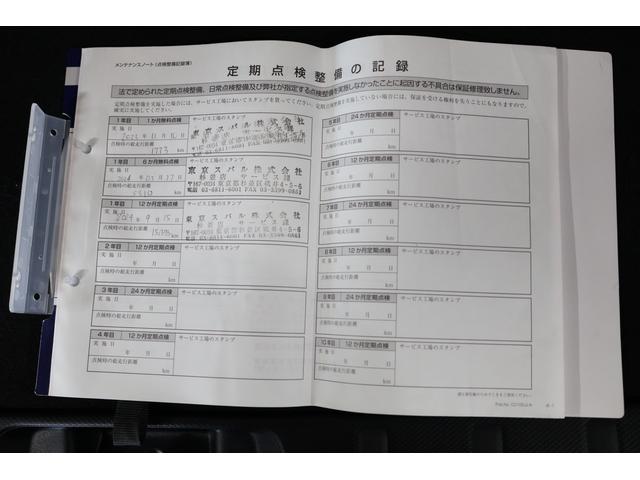 メンテナンスノート（点検整備記録簿）
定期点検整備の記録
法で定められた定期点検整備、日常点検整備及び弊社が指定する点検整備を実施しなかったことに起因する不具合は保証修理致しません。
定期点検整備を実施した場合には、サービス工場においてスタンプを貰ってください。定期点検整備を実施していない場合には、保証を受ける権利を失うことにもなりますので、
確実に実施してください。
1年目 1か月無料点検 サービス工場のスタンプ
実施日
年 月 日
点検時の総走行距離
1773 km
東京スバル株式会社
杉並店 サービス課
1年目 6か月無料点検 サービス工場のスタンプ
実施日
年 月 日
点検時の総走行距離
km
東京スバル株式会社
杉並店 サービス課
〒167-0034 東京都杉並区桃井4-5-6
03-6811-6001 FAX 03-5399-0861
1年目 12か月定期点検 サービス工場のスタンプ
実施日
2024年 9月 15日
点検時の総走行距離
km
東京スバル株式会社
杉並店 サービス課
2年目 12か月定期点検 サービス工場のスタンプ
実施日
年 月 日
点検時の総走行距離
km
3年目 24か月定期点検 サービス工場のスタンプ
実施日
年 月 日
点検時の総走行距離
km
4年目 12か月定期点検 サービス工場のスタンプ
実施日
年 月 日
点検時の総走行距離
km
5年目 24か月定期点検 サービス工場のスタンプ
実施日
年 月 日
点検時の総走行距離
km
6年目 12か月定期点検 サービス工場のスタンプ
実施日
年 月 日
点検時の総走行距離
km
7年目 24か月定期点検 サービス工場のスタンプ
実施日
年 月 日
点検時の総走行距離
km
8年目 12か月定期点検 サービス工場のスタンプ
実施日
年 月 日
点検時の総走行距離
km
9年目 24か月定期点検 サービス工場のスタンプ
実施日
年 月 日
点検時の総走行距離
km
10年目 12か月定期点検 サービス工場のスタンプ
実施日
年 月 日
点検時の総走行距離
km